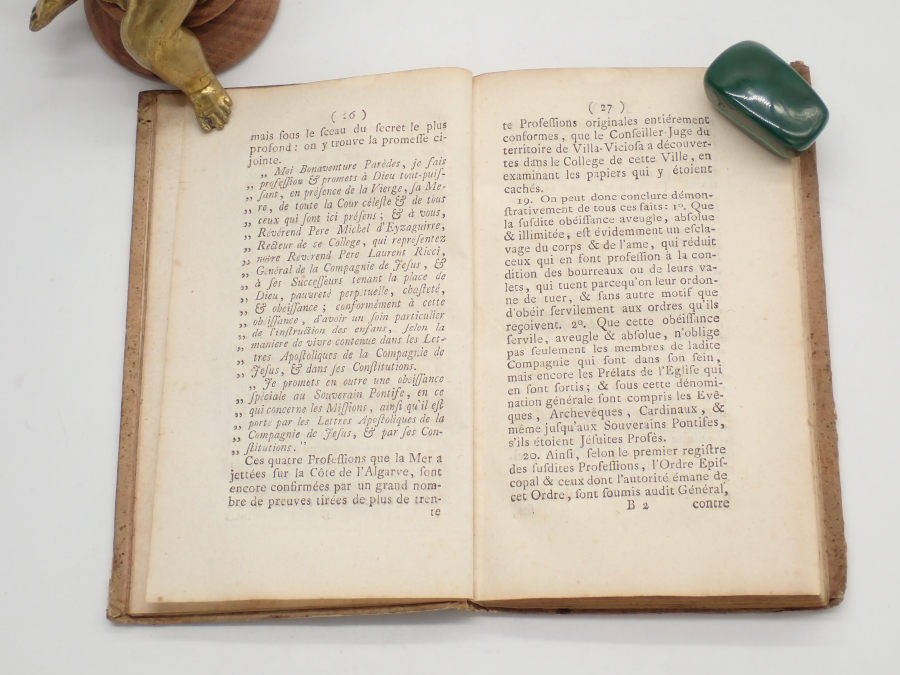 ( 26 )
mais ſous le ſceau du ſecret le plus
profond : on y trouve la promeſſe ci-
jointe.
„ Moi Bonaventure Parèdes, je fais
„ profeſſion & promets à Dieu tout-puiſ-
„ ſant, en préſence de la Vierge, ſa Me-
„ re, de toute la Cour céleſte & de tous
„ ceux qui ſont ici préſens ; & à vous,
„ Révérend Pere Michel d'Eyzaguirre,
„ Recteur de ce College, qui repréſentez
„ notre Révérend Pere Laurent Ricci,
„ Général de la Compagnie de Jeſus, &
„ à ſes Succeſſeurs tenant la place de
„ Dieu, pauvreté perpétuelle, chaſteté,
„ & obéiſſance ; conformément à cette
„ obéiſſance, d'avoir un ſoin particulier
„ de l'inſtruction des enfans, ſelon la
„ maniere de vivre contenue dans les Let-
„ tres Apoſtoliques de la Compagnie de
„ Jeſus, & dans ſes Conſtitutions.
„ Je promets en outre une obéiſſance
„ ſpéciale au Souverain Pontife, en ce
„ qui concerne les Miſſions, ainſi qu'il eſt
„ porté par les Lettres Apoſtoliques de la
„ Compagnie de Jeſus, & par ſes Con-
„ ſtitutions. "
Ces quatre Profeſſions que la Mer a
jettées ſur la Côte de l'Algarve, ſont
encore confirmées par un grand nom-
bre de preuves tirées de plus de tren-
te
( 27 )
te Profeſſions originales entiérement
conformes, que le Conſeiller-Juge du
territoire de Villa-Vicioſa a découver-
tes dans le College de cette Ville, en
examinant les papiers qui y étoient
cachés.
19. On peut donc conclure démon-
ſtrativement de tous ces faits : 1º. Que
la ſuſdite obéiſſance aveugle, abſolue
& illimitée, eſt évidemment un eſcla-
vage du corps & de l'ame, qui réduit
ceux qui en font profeſſion à la con-
dition des bourreaux ou de leurs va-
lets, qui tuent parcequ'on leur ordon-
ne de tuer, & ſans autre motif que
d'obéir ſervilement aux ordres qu'ils
reçoivent. 2º. Que cette obéiſſance
ſervile, aveugle & abſolue, n'oblige
pas ſeulement les membres de ladite
Compagnie qui ſont dans ſon ſein,
mais encore les Prélats de l'Egliſe qui
en ſont ſortis ; & ſous cette dénomi-
nation générale ſont compris les Evê-
ques, Archevêques, Cardinaux, &
même juſqu'aux Souverains Pontifes,
s'ils étoient Jéſuites Profès.
20. Ainſi, ſelon le premier regiſtre
des ſuſdites Profeſſions, l'Ordre Epiſ-
copal & ceux dont l'autorité émane de
cet Ordre, ſont ſoumis audit Général,
B 2 contre